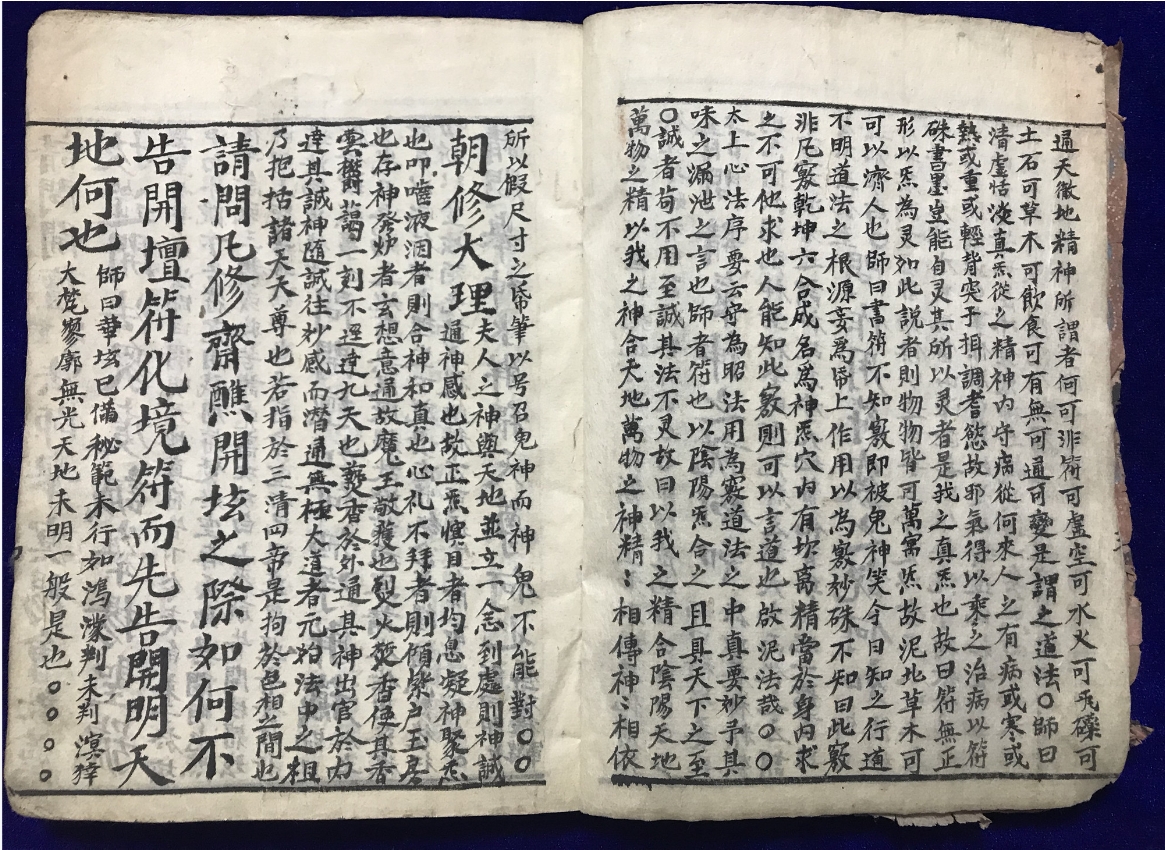 通天徹地精神所謂者何可非符可虛空可水火可瓦礫可
土石可草木可飲食可有無可通可變是謂之道法〇師曰
清虛恬淡真炁從之精神内守病從何來人之有病或寒或
熱或重或輕背突于揖調者慾故邪氣得以乘之治病以符
硃書墨豈能自灵其所以灵者是我之真炁也故曰符無正
形以炁為灵如此説者則物物皆可萬寓炁故泥北草木可
可以濟人也師曰書符不知竅即被鬼神笑今日知之行道
不明道法之根源妄爲帋上作用以為竅妙硃不知曰此竅
非凡竅乾坤六合成名為神炁穴内有坎离精當於身内求
之不可他求也人能知此竅則可以言道也啟泥法哉〇〇
太上心法序要云守為昭法用為竅道法之中真要妙予其
味之漏泄之言也師者符也以陰陽炁合之且具天下之至
〇誠者苟不用至誠其法不灵故曰以我之精合陰陽天地
萬物之精以我之神合天地萬物之神精〻相傳神〻相依
所以假尺寸之帋筆以号召鬼神而神鬼不能對〇〇
朝修大理 夫人之神與天地並立一念到處則神誠
通神感也故正炁慎目者均息凝神聚炁
也叩嚥液洇者則合神和真也心礼不拜者則傾紫户玉房
也存神發妙者玄想意通故魔王敬護也烈火焚香使真香
雲欝藹一刻不逕達九天也爇香於外通其神出官於内
達其誠神隨誠往抄感而潛通無極大道者元始法中之祖
乃把括諸天天尊也若指於三清四帝是拘於色相之間也
請問凡修齋醮開坛之際如何不
告開壇符化境符而先告開明天
地何也 師曰華坛已備秘範未行如鴻濛判未判溟涬
大梵寥廓無光天地未明一般是也〇〇〇〇